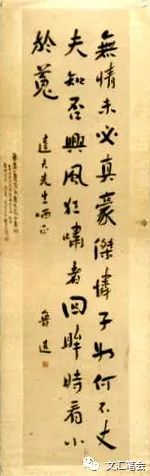 無情未必真豪傑憐子如何不丈
夫知否興風狂嘯者回眸時看小
於菟
達夫先生哂正
魯迅
文汇笔会